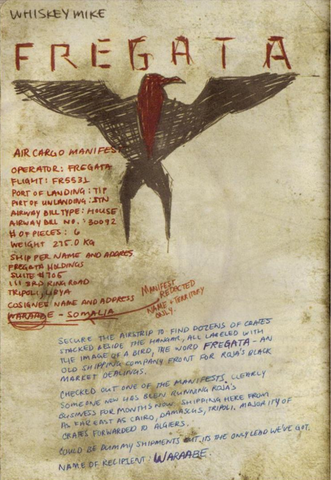 WHISKEY MIKE
FREGATA
AIR CARGO MANIFEST
OPERATOR: FREGATA
FLIGHT: FR5531
PORT OF LANDING: TIP
PORT OF UNLANDING: STN
AIRWAY BILL TYPE: HOUSE
AIRWAY BILL NO.: 30092
# OF PIECES: 6
WEIGHT 275.0 KG
SHIPPER NAME AND ADDRES
FREGATA HOLDINGS
SUITE #705
111 3RD RING ROAD
TRIPOLI, LIBYA
COSIGNER NAME AND ADDRESS
WARAABE - SOMALIA
MANIFEST
REDACTED
NAME + TERRITORY
ONLY.
SECURE THE AIRSTRIP TO FIND DOZENS OF CRATES
STACKED BESIDE THE HANGAR, ALL LABELED WITH
THE IMAGE OF A BIRD, THE WORD FREGATA - AN
OLD SHIPPING COMPANY FRONT FOR ROJA'S BLACK
MARKET DEALINGS.
CHECKED OUT ONE OF THE MANIFESTS. CLEARLY
SOMEONE NEW HAS BEEN RUNNING ROJA'S
BUSINESS FOR MONTHS NOW - SHIPPING HERE FROM
AS FAR EAST AS CAIRO, DAMASCUS, TRIPOLI, MAJORITY OF
CRATES FORWARDED TO ALGIERS.
COULD BE DUMMY SHIPMENTS BUT IT'S THE ONLY LEAD WE'VE GOT.
NAME OF RECIPIENT: WARAABE